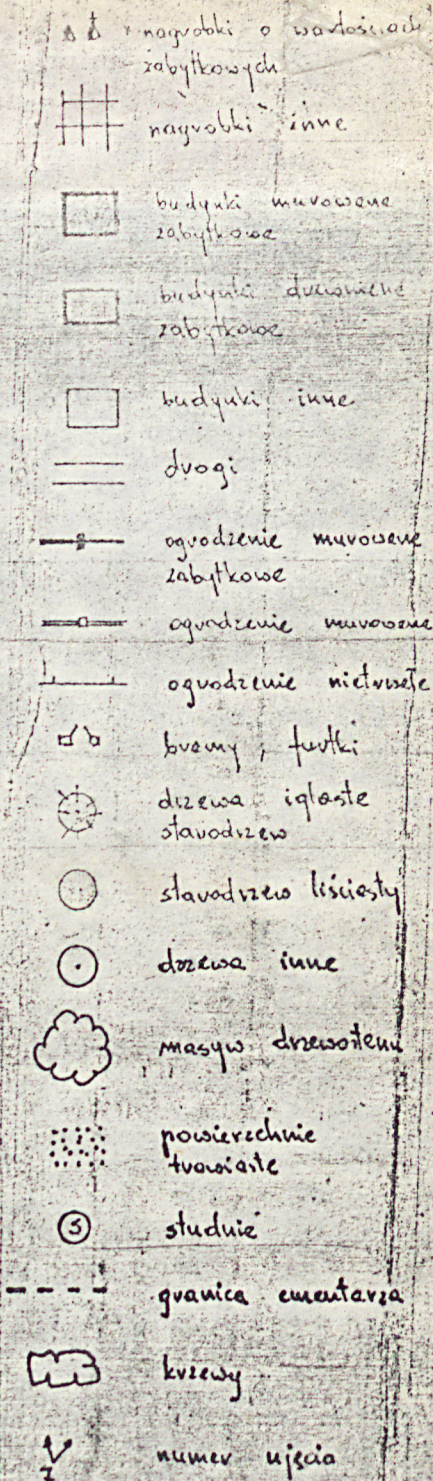 nagrobki o wartościach
zabytkowych
nagrobki inne
budynki murowane
zabytkowe
budynki drewniane
zabytkowe
budynki inne
drogi
ogrodzenie murowane
zabytkowe
ogrodzenie murowane
ogrodzenie nietrwałe
bramy, furtki
drzewa iglaste
starodrzew
starodrzew liściasty
drzewa inne
masyw drzewostanu
powierzchnie
trawiaste
S studnie
granica cmentarza
krzewy
numer ujęcia